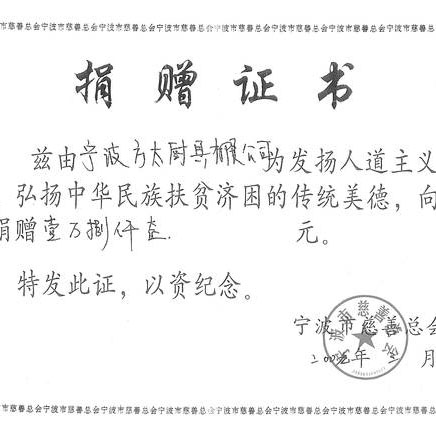 市慈善总会宁波市慈善总会宁波市慈善总会宁波市慈善总会宁波市慈善总会宁波市慈善总会宁波市慈善总会
捐赠证书
兹由宁波方太厨具有限公司为发扬人道主义
弘扬中华民族扶贫济困的传统美德，向
捐赠壹万捌仟 元。
特发此证，以资纪念。
宁波市慈善总会
年 月
市慈善总会宁波市慈善总会宁波市慈善总会宁波市慈善总会宁波市慈善总会宁波市慈善总会宁波市慈善总会